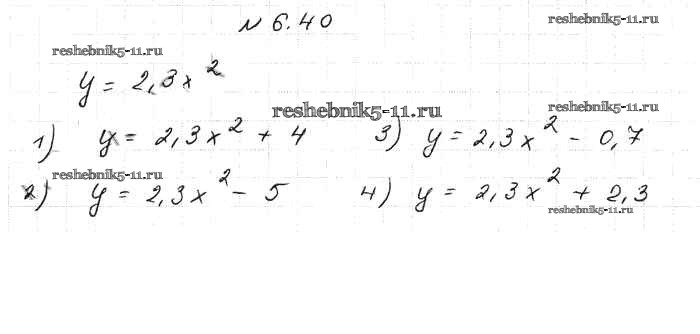 № 6.40
reshebnik5-11.ru
reshebnik5-11.ru
y = 2,3x²
reshebnik5-11.ru
reshebnik5-11.ru
1) y = 2,3x² + 4 3) y = 2,3x² - 0,7
reshebnik5-11.ru
2) y = 2,3x² - 5 4) y = 2,3x² + 2,3
reshebnik5-11.ru